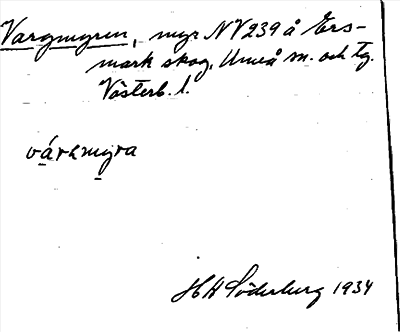 Vargmyren, myr NV 239 å Ers-
mark skog, Umeå sn. och tg.
Västerb. l.
várkmyra
H H Söderberg 1934